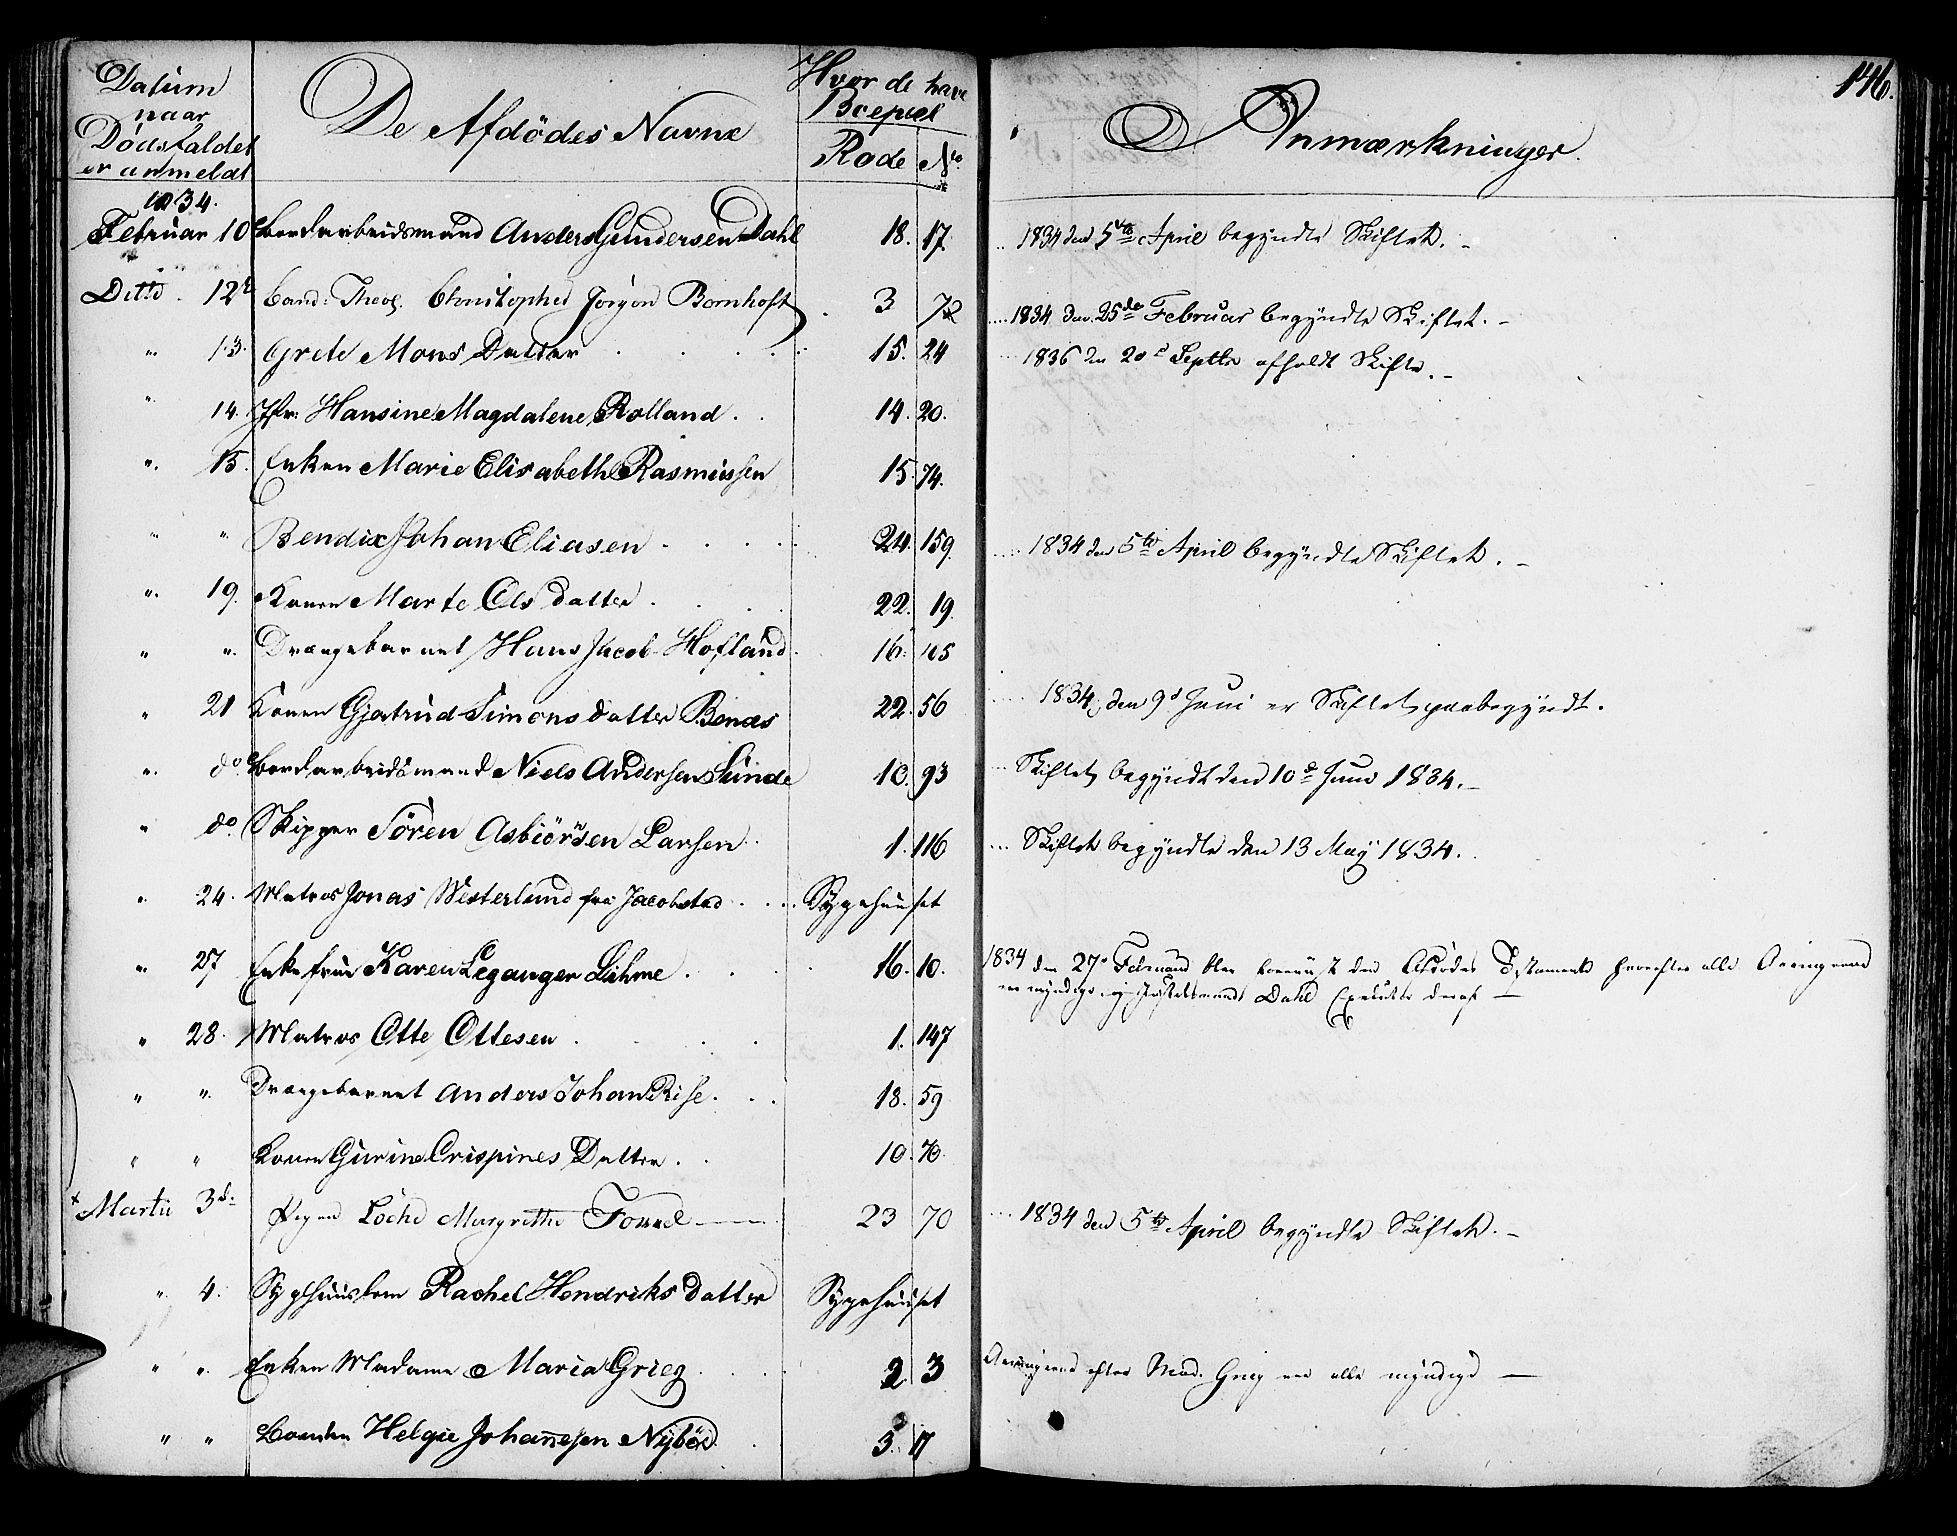 146.
Datum naar Dødsfaldet er anmeldt
De Afdödes Navne
Hvor de have Boepæl
Rode No
Anmærkninger.
1834.
Februar 10 Bordarbeidsmand Anders Gundersen Dahl 18. 17. 1834 den 5te April begyndte Skiftet. -
Ditto. 12te Cand: Theol. Christopher Jørgen Bornhoft 3 72 1834 den 25de Februar begyndte Skiftet. -
" 13. Grete Mons Datter 15. 24 1836 den 20d Septbr afholdt Skifte. -
" 14. Jfr: Hansine Magdalene Rolland. 14. 20.
". 15. Enken Marie Elisabeth Rasmussen 15. 74.
" " Bendix Johan Eliasen 24. 159. 1834 den 5te April begyndte Skiftet. -
". 19. Konen Marte Ols datter. 22. 19.
" ". Drængebarnet Hans Jacob Hofland. 16. 45
" 21 Konen Gjertrud Simons datter Benæs 22. 56 1834, den 9d Juni er Skiftet paabegyndt.
". do. Bordarbeidsmand Niels Andersen Sunde 10. 93 Skiftet begyndt den 10de Juni 1834. -
" do. Skipper Sören Asbiörnsen Larsen. 1. 116 Skiftet begyndte den 13 May 1834.
". 24. Matros Jonas Westerlund fra Jacobstad Sygehuuset
". 27 Enkefrue Karen Leganger Lühme. 16. 10. 1834 den 27de Februar blev den Afdödes Testamente hvorefter alle Arvingerne
ere myndige, og Dahl Executor deraf —
" 28. Matros Otte Ottesen 1. 147
" ". Drængebarnet Anders Johan Rise. 18. 59
" " Konen Gurine Crispines Datter. 10. 70.
+ Martii 3d. Pigen Margrethe 23 70 1834 den 5te April begyndte Skiftet. -
". 4. Sygehuuslem Rachel Hendriks Datter Sygehuuset
" ". Enken Madame Maria Grieg 2 3 Arvingerne efter Mad. Grieg ere alle myndige —
" " Bonden Helgie Johannesen Nÿböe. 5. 17